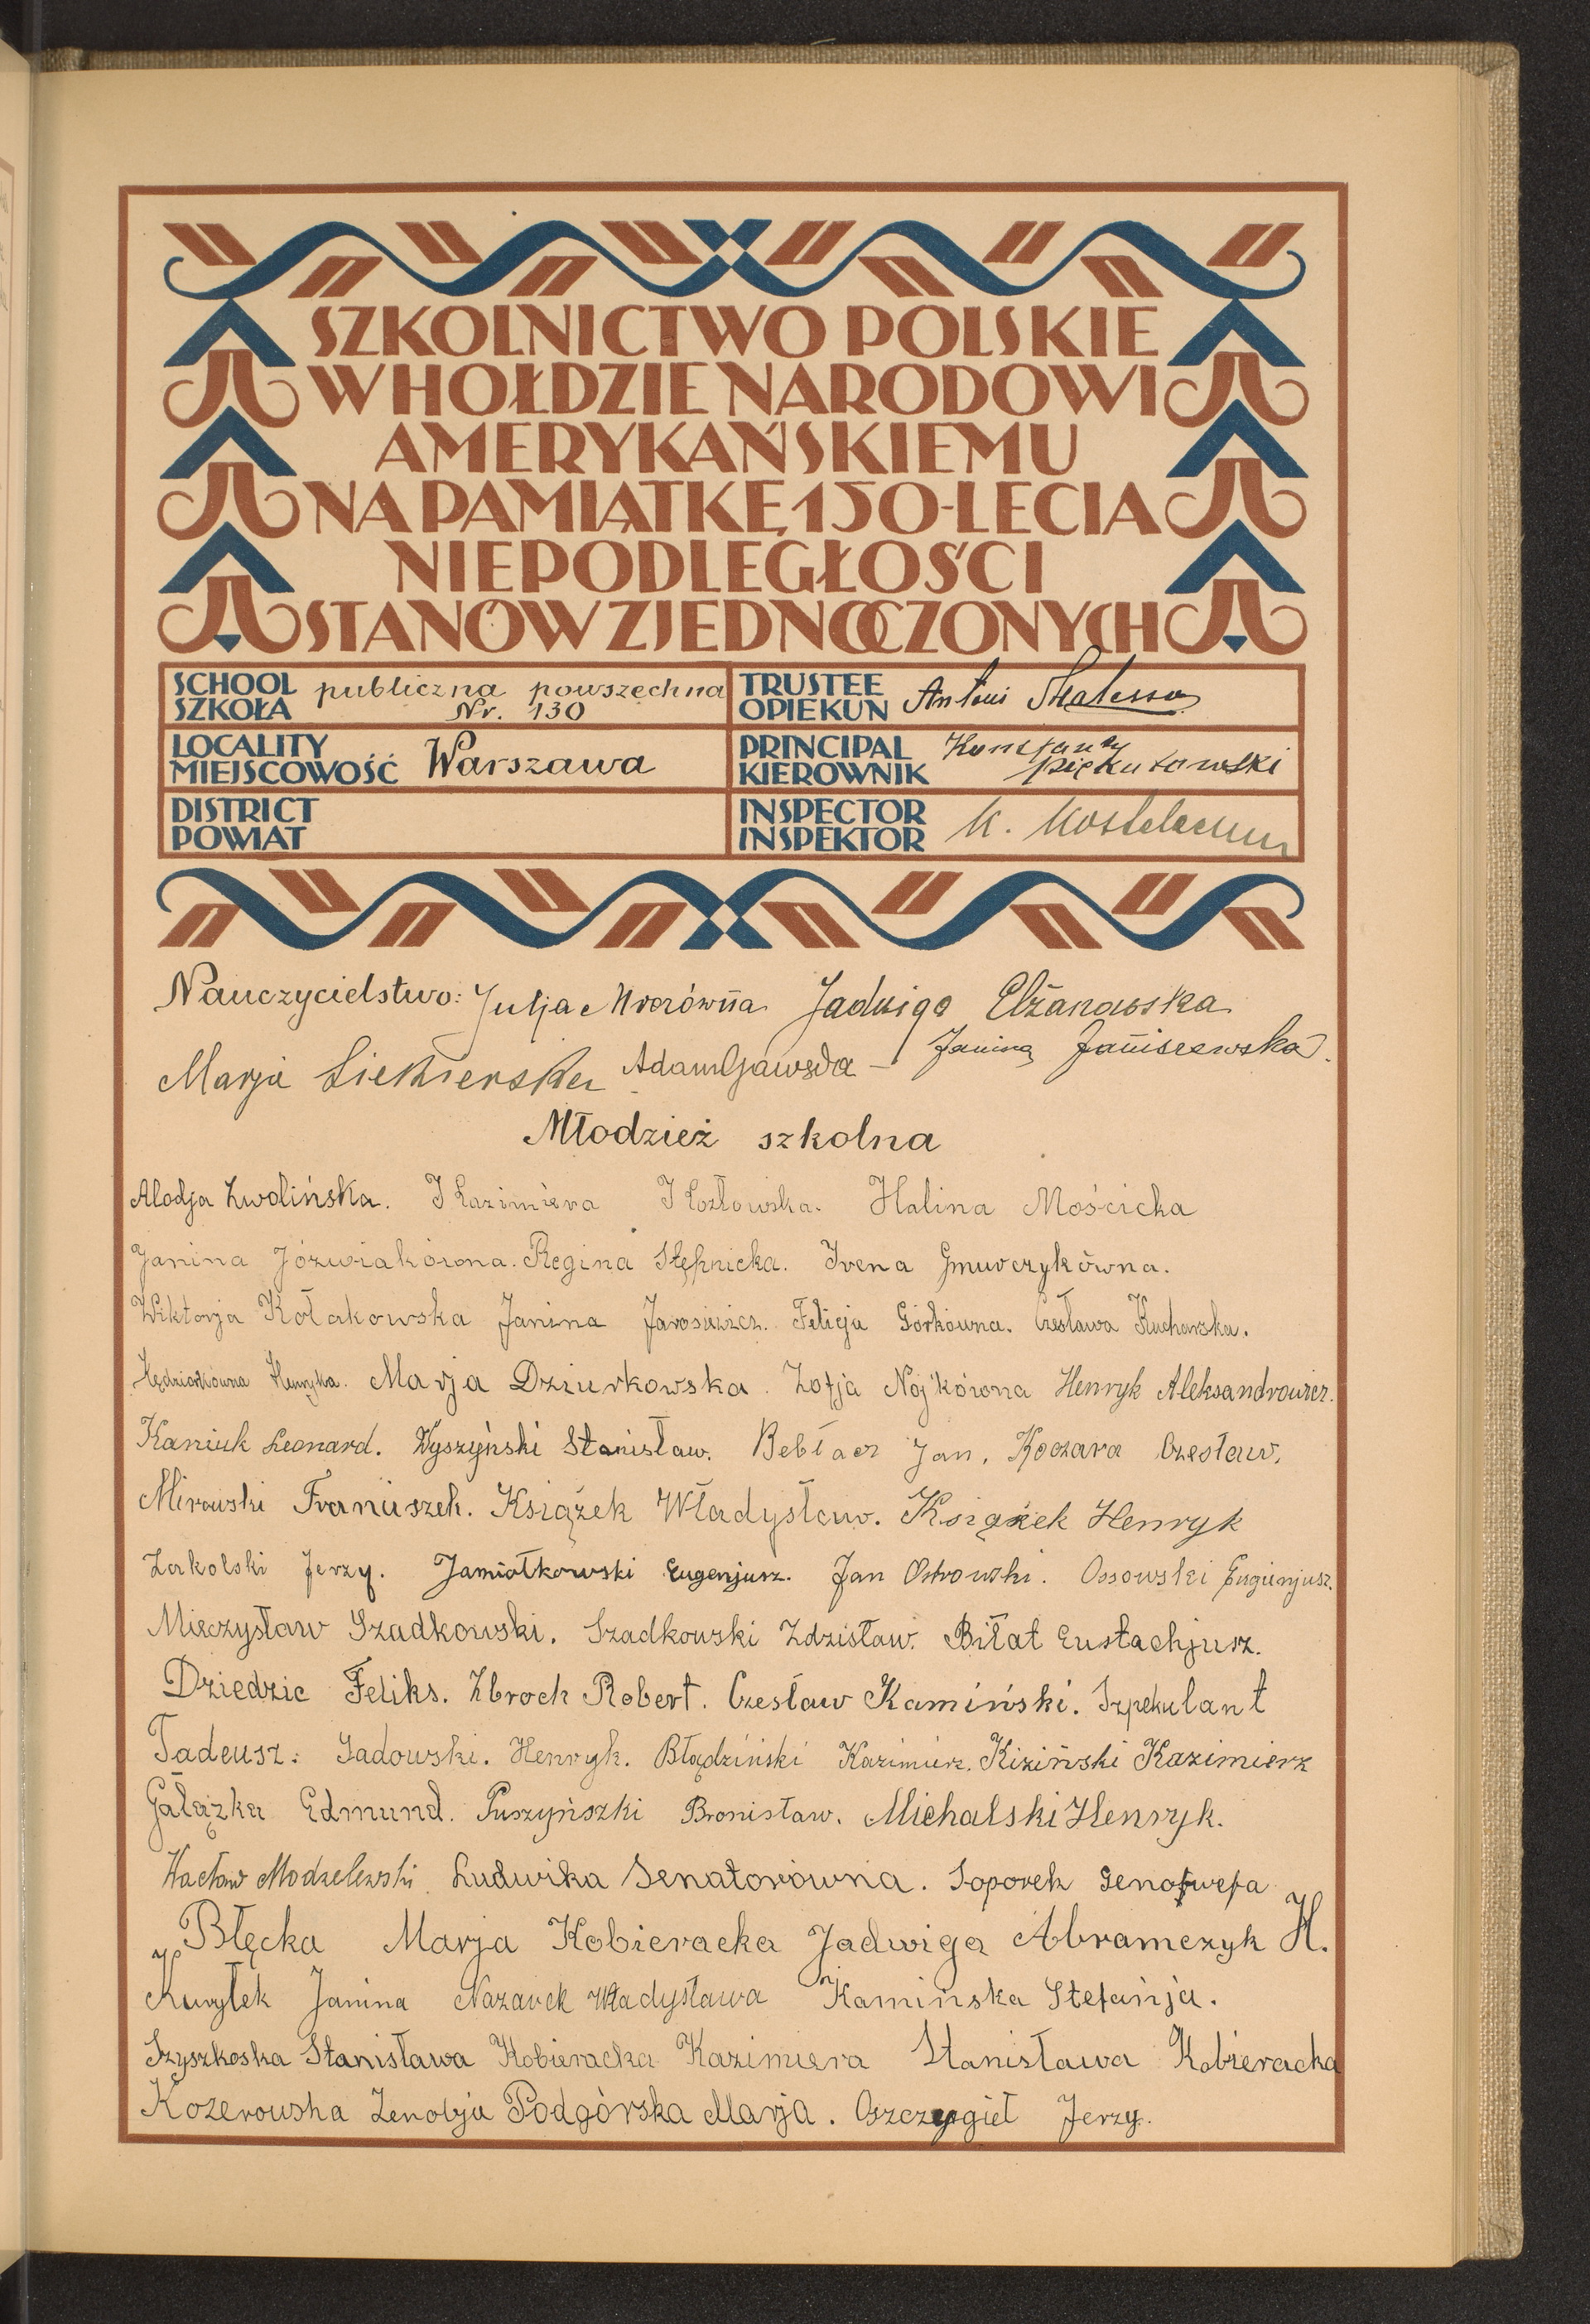 SZKOLNICTWO POLSKIE
W HOŁDZIE NARODOWI
AMERYKAŃSKIEMU
NA PAMIĄTKĘ 150-LECIA
NIEPODLEGŁOŚCI
STANÓW ZJEDNOCZONYCH
SCHOOL
SZKOŁA
publiczna powszechna
Nr. 130
TRUSTEE
OPIEKUN
Antoni
LOCALITY
MIEJSCOWOŚĆ
Warszawa
PRINCIPAL
KIEROWNIK
Konstanty
Piękutowski
DISTRICT
POWIAT
INSPECTOR
INSPEKTOR
K.
Nauczycielstwo: Julja Mrozówna Jadwiga Elżanowska
Marja Siekierska Adam Gawęda – Janina Janiszewska.
Młodzież szkolna
Alodja Zwolińska. Kazimiera Kozłowska. Halina Mościcka
Janina Józwiakówna. Regina Stępnicka. Irena Gmurczykówna.
Wiktorja Kołakowska Janina Jarosiewicz. Felicja Górkówna. Czesława Kucharska.
Kędziorkówna Henryka. Marja Dziurkowska. Zofja Nojkówna Henryk Aleksandrowicz.
Kaniuk Leonard. Wyszyński Stanisław. Bebłacz Jan. Koczara Czesław.
Mirowski Franiuszek. Książek Władysław. Książek Henryk
Zakolski Jerzy. Jamiołkowski Eugenjusz. Jan Ostrowski. Ossowski Eugienjusz.
Mieczysław Szadkowski. Szadkowski Zdzisław. Biłat Eustachjusz.
Dziedzic Feliks. Zbroch Robert. Czesław Kamiński. Szpekulant
Tadeusz. Sadowski. Henryk. Błądziński Kazimierz. Kiziński Kazimierz
Gałązka Edmund. Puszyńszki Bronisław. Michalski Henryk.
Wacław Modzelewski. Ludwika Senatorówna. Soporek Genofwefa
Błęcka Marja Kobieracka Jadwiga Abramczyk H.
Kuryłek Janina Nazarek Władysława Kamińska Stefanja.
Szyszkoska Stanisława Kobieracka Kazimiera Stanisława Kobieracka
Kozerowska Zenobja Podgórska Marja. Oszczygieł Jerzy.